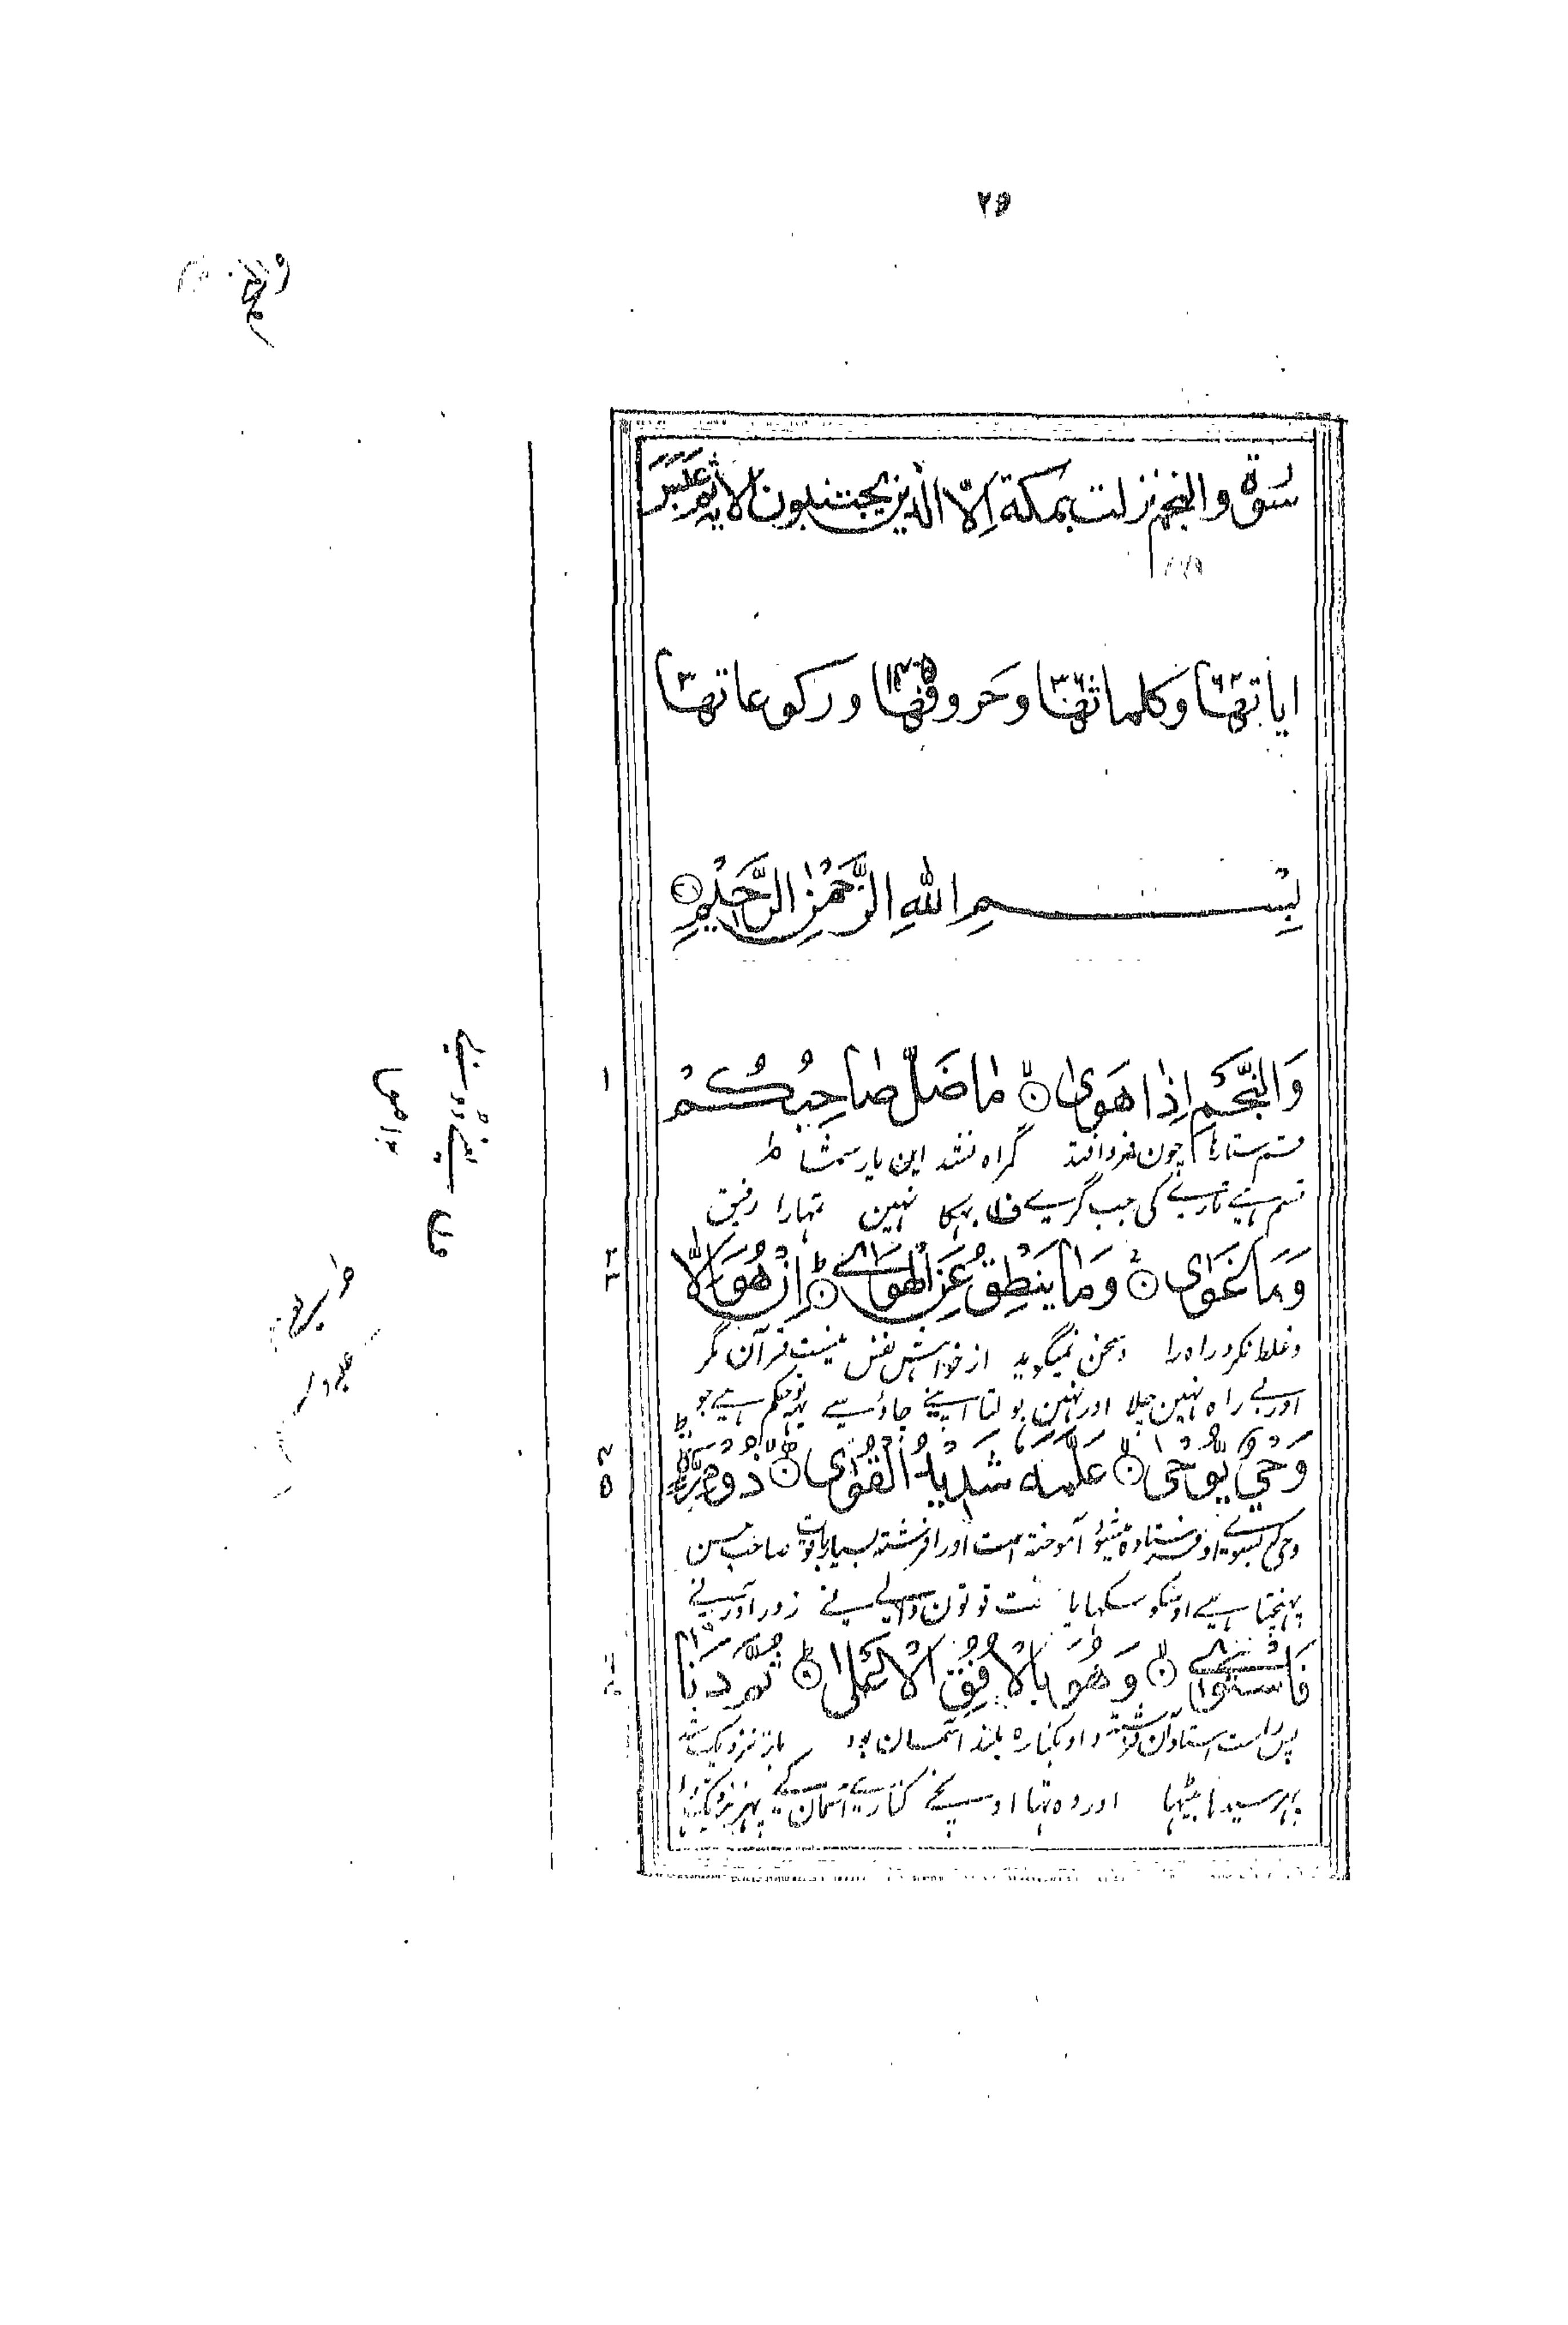 ٢٥
والنجم
سورة والنجم نزلت بمكة اِلّا الّذين يجتنبون الآية
اياتها ٦٢ وكلماتها ٣٦٠ وحروفها ١٤٠٥ وركوعاتها ٣
بِسْمِ اللهِ الرَّحْمٰنِ الرَّحِيْمِ
١
وَالنَّجْمِ اِذَا هَوٰى ۙ مَا ضَلَّ صَاحِبُكُمْ
قسم ستارها چون فرو افتد گمراه نشد این یار شما
قسم ہے تارے کی جب گرے ف بہکا نہین تمہارا رفیق
٢
٣
وَمَا غَوٰى ۚ وَمَا يَنْطِقُ عَنِ الْهَوٰى ؕ اِنْ هُوَ اِلَّا
و غلط نکرد راه را و سخن نمیگوید از خواهش نفس نیست قرآن مگر
اور بے راہ نہین چلا اور نہین بولتا اپنے چاؤ سے یہہ تو حکم ہے جو
٤
٥
وَحْيٌ يُّوْحٰى ۙ عَلَّمَهٗ شَدِيْدُ الْقُوٰى ۙ ذُوْ مِرَّةٍ ؕ
وحی که بسوے او فرستاده میشود آموخته است او را فرشته بسیار باقوت صاحب حسن
پہنچتا ہے اوسکو سکہایا سخت قوتون والے نے زور آور نے
فَاسْتَوٰى ۙ وَهُوَ بِالْاُفُقِ الْاَعْلٰى ؕ ثُمَّ دَنَا
پس راست استاد آن فرشته و او بکناره بلند آسمان بود باز نزدیک شد
پہر سیدہا بیٹہا اور وہ تہا اونچے کنارے آسمان کے پہر نزدیک ہوا